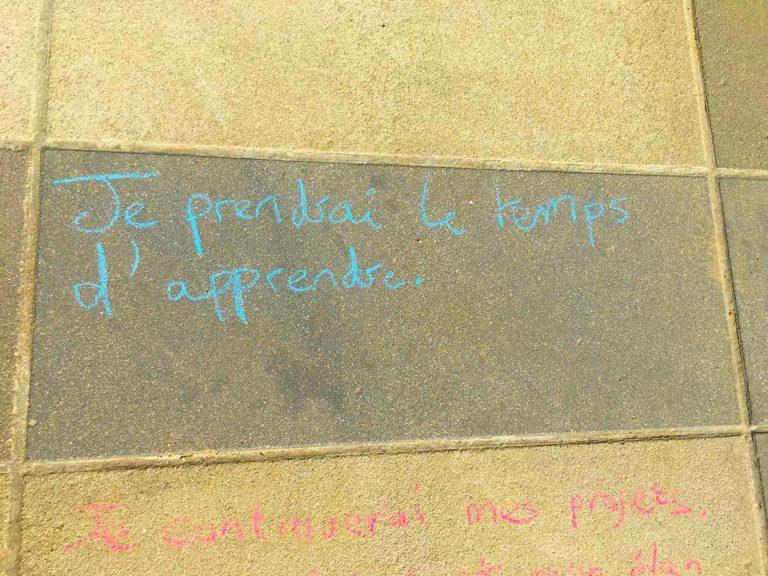 Je prendrai le temps
d'apprendre.
Je continuerai mes projets,
mon élan